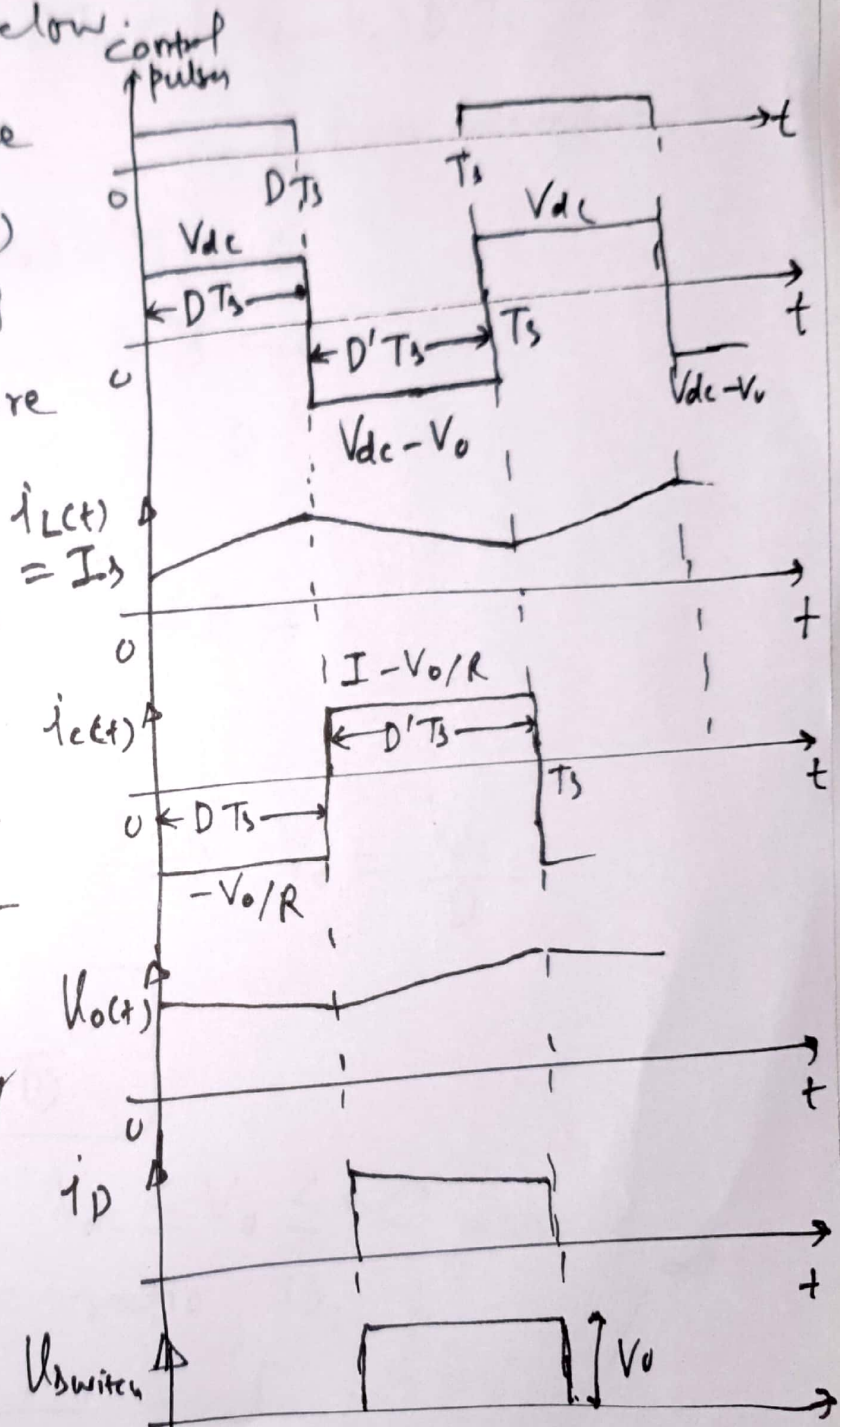 elow.
control
pulses
e
t
0
DTs
Ts
)
Vdc
Vdc
DTs
t
D'Ts
Ts
0
re
Vdc-Vo
Vdc-Vo
iL(t)
= Is
t
0
I-Vo/R
ic(t)
D'Ts
t
Ts
0
DTs
-Vo/R
Vo(t)
t
0
iD
t
Vswitch
Vo